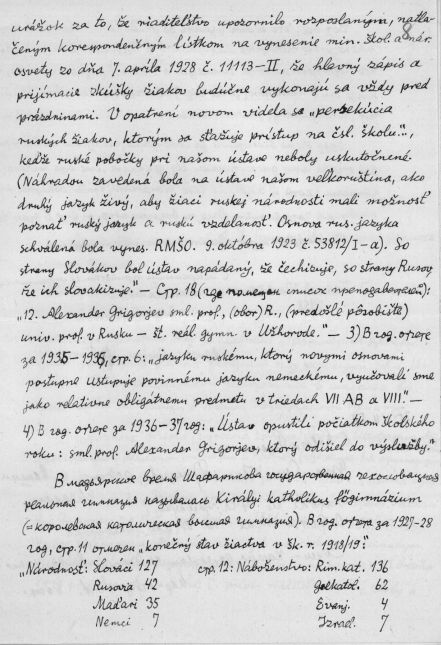 8
urážok za to, že riaditeľstvo upozornilo rozposlaným, natla-
čeným korespondenčným lístkom na vynesenie min. škol. a nár.
osvety zo dňa 7. apríla 1928 č. 11113-II, že hlavný zápis a
prijímacie zkúšky žiakov budúcne vykonajú sa vždy pred
prázdninami. V opatrení novom videla sa „persekúcia
ruských žiakov, ktorým sa sťažuje prístup na čsl. školu“...,
keďže ruské pobočky pri našom ústave neboly uskutočnené.
(Náhradou zavedená bola na ústave našom veľkoruština, ako
druhý jazyk živý, aby žiaci ruskej národnosti mali možnosť
poznať ruský jazyk a ruskú vzdelanosť. Osnova rus. jazyka
schválená bola vynes. RMŠO. 9. októbra 1923 č. 53812/I-a). So
strany Slovákov bol ústav napádaný, že čechizuje, so strany Rusov,
že ich slovakizuje.“ — Стр. 18 (где помещен список преподавателей):
"12. Alexander Grigorjev sml. prof., (obor) R., (predošlé pôsobište)
univ. prof. v Rusku — št. reál. gymn. v Užhorode." — 3) В год. отчете
за 1935-1936, стр. 6: "jazyku ruskému, ktorý novými osnovami
postupne ustupuje povinnému jazyku nemeckému, vyučovali sme
jako relatívne obligátnemu predmetu v triedach VII AB a VIII." —
4) В год. отчете за 1936-37 год: "Ústav opustili počiatkom školského
roku: sml. prof. Alexander Grigorjev, ktorý odišiel do výslužby."
В мадьярское время государственная чехословацкая
реальная гимназия называлась Királyi katholikus főgimnázium
(= королевская католическая высшая гимназия). В год. отчете за 1927-28
год, стр. 11 отмечен "konečný stav žiactva v šk. r. 1918/19:"
"Národnosť: Slováci 127 стр. 12: Náboženstvo: Rím. kat. 136
Rusovia 42 Gr. katol. 62
Maďari 35 Evanj. 4
Nemci 7 Izrael. 7